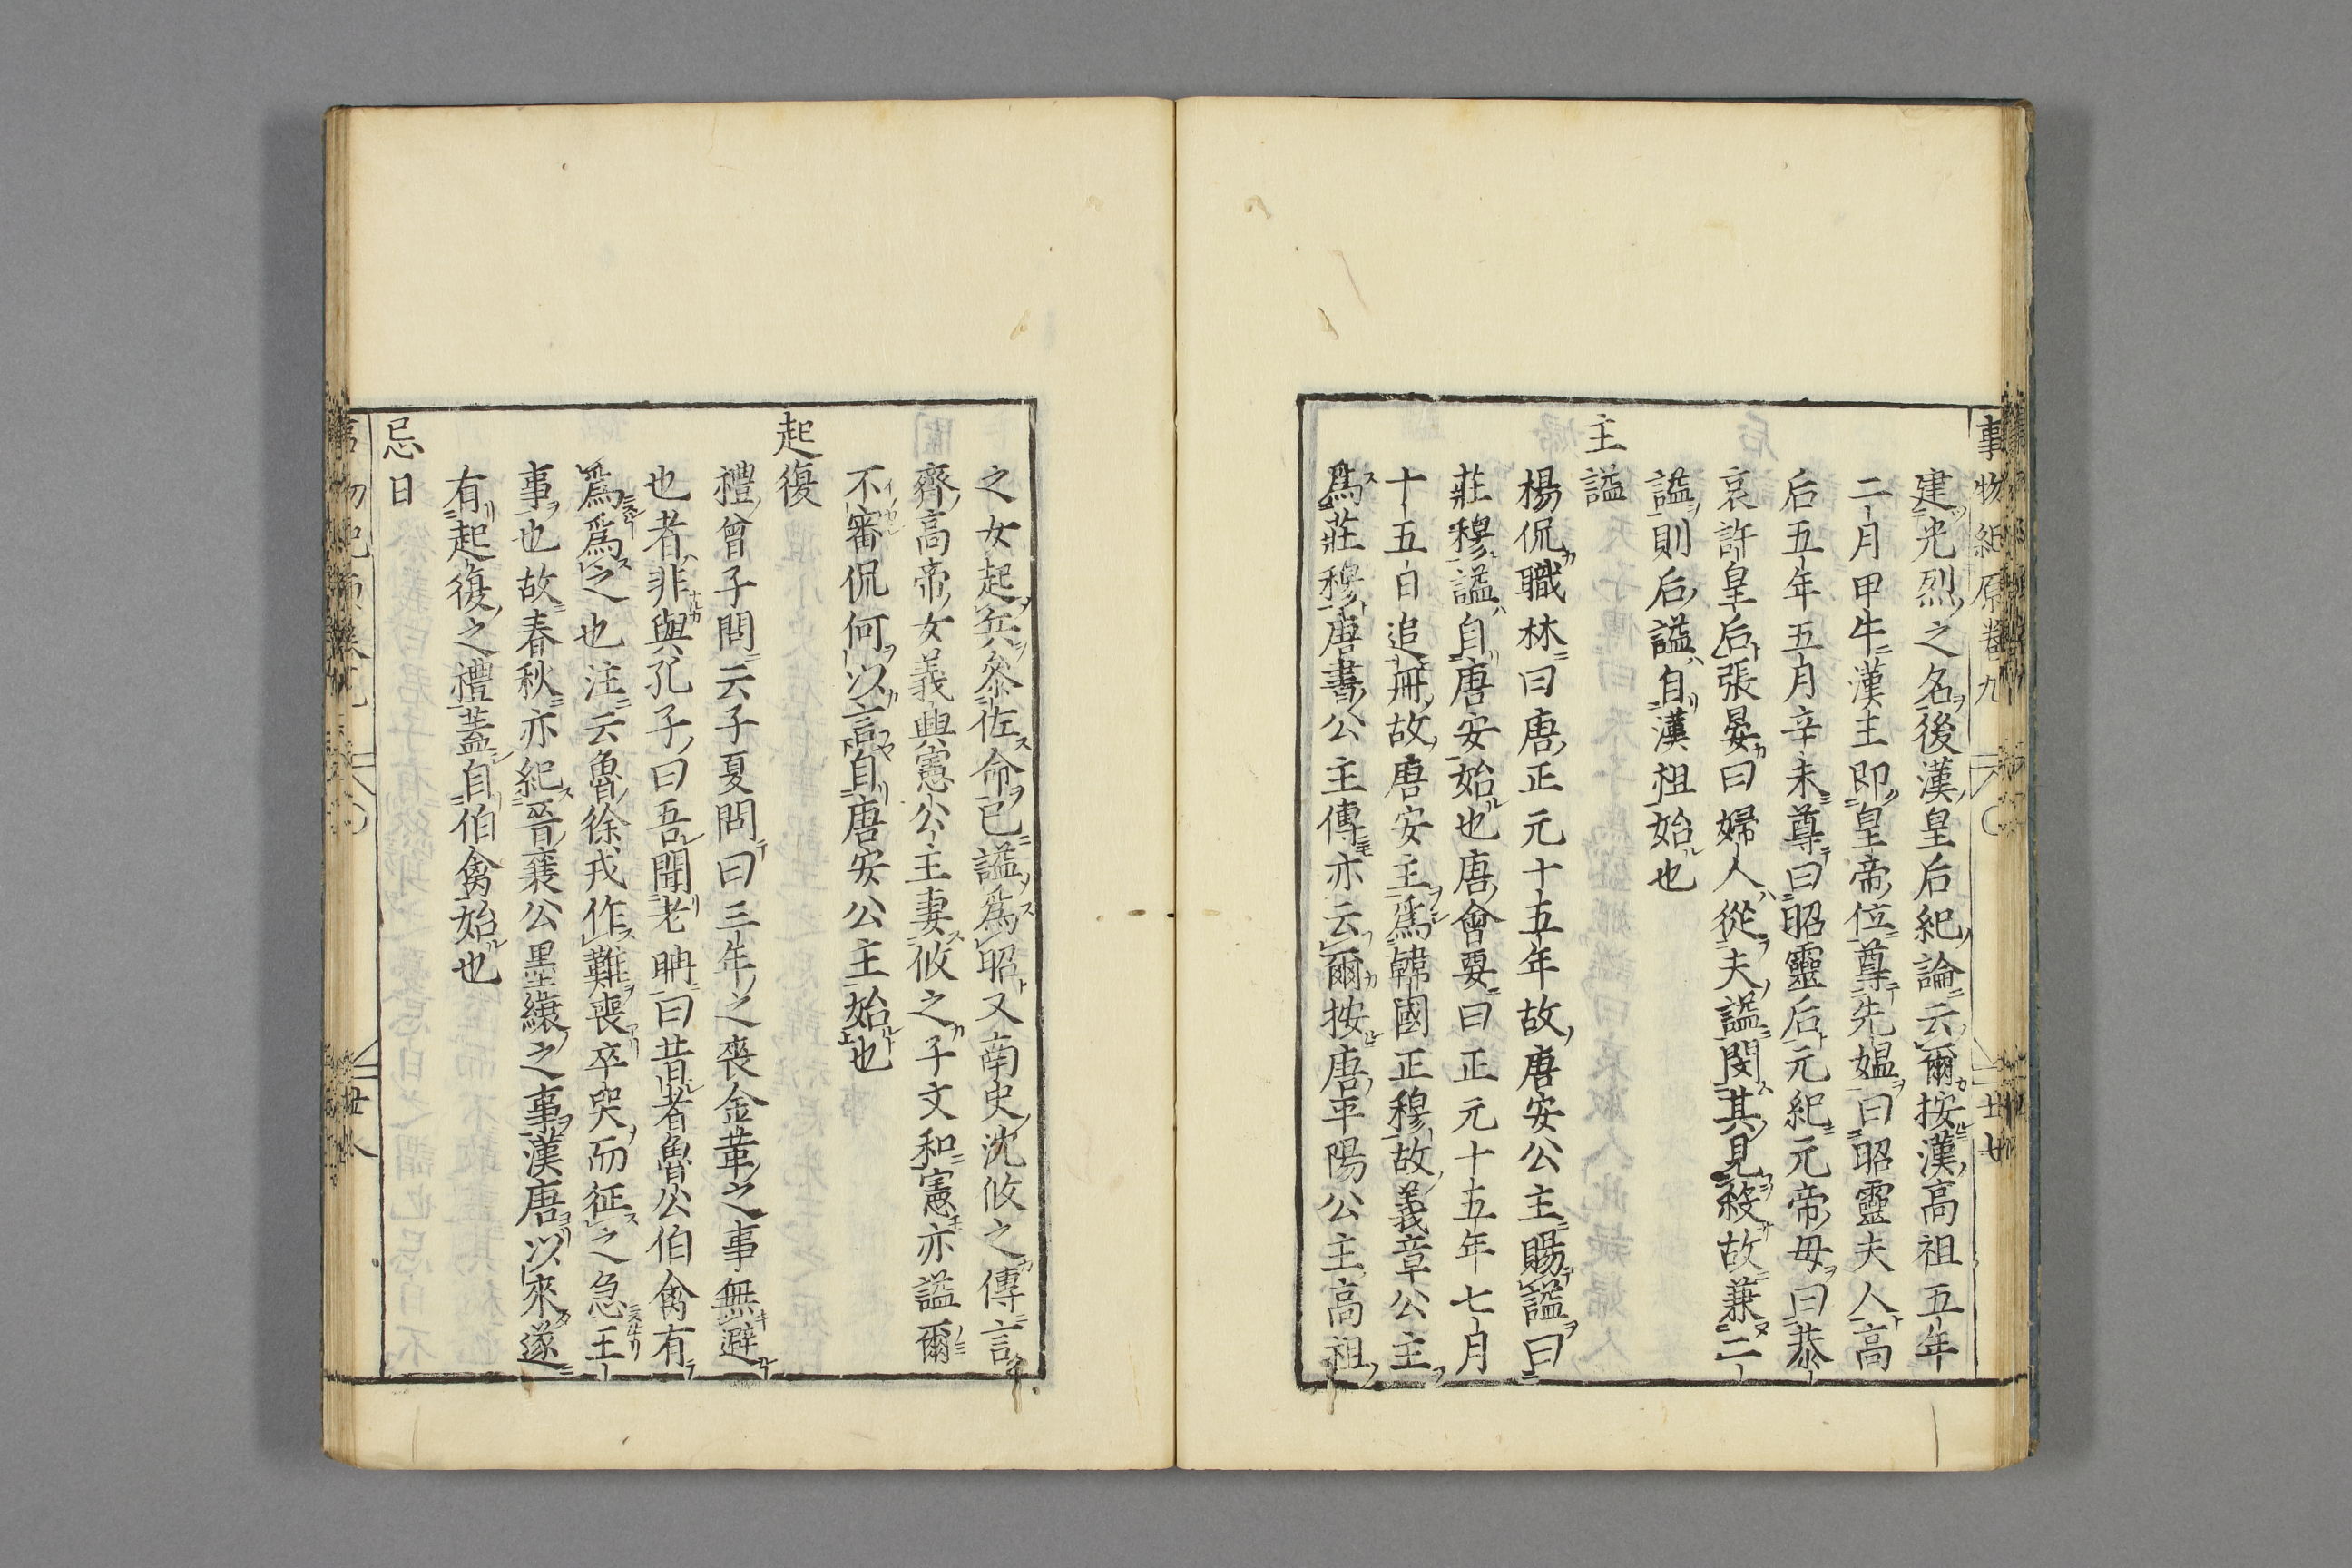 事物紀原卷九
建光烈之名後漢皇后紀論云爾按漢高祖五年
二月甲午漢王即皇帝位尊先媼曰昭靈夫人高
后五年五月辛未尊曰昭靈后元紀元帝母曰恭
哀許皇后張晏曰婦人從夫謚閔其見殺故兼二
謚則后謚自漢祖始也
主謚
楊侃職林曰唐正元十五年故唐安公主賜謚曰
莊穆謚自唐安始也唐會要曰正元十五年七月
十五日追冊故唐安主為韓國正穆故義章公主
為莊穆唐書公主傳亦云爾按唐平陽公主高祖
之女起兵參佐命已謚為昭又南史沈攸之傳言
齊高帝女義興憲公主妻攸之子文和憲亦謚爾
不審侃何以言自唐安公主始也
起復
禮曾子問云子夏問曰三年之喪金革之事無避
也者非與孔子曰吾聞老聃曰昔者魯公伯禽有
為為之也注云魯徐戎作難喪卒哭而征之急王
事也故春秋亦紀晉襄公墨縗之事漢唐以來遂
有起復之禮蓋自伯禽始也
忌日